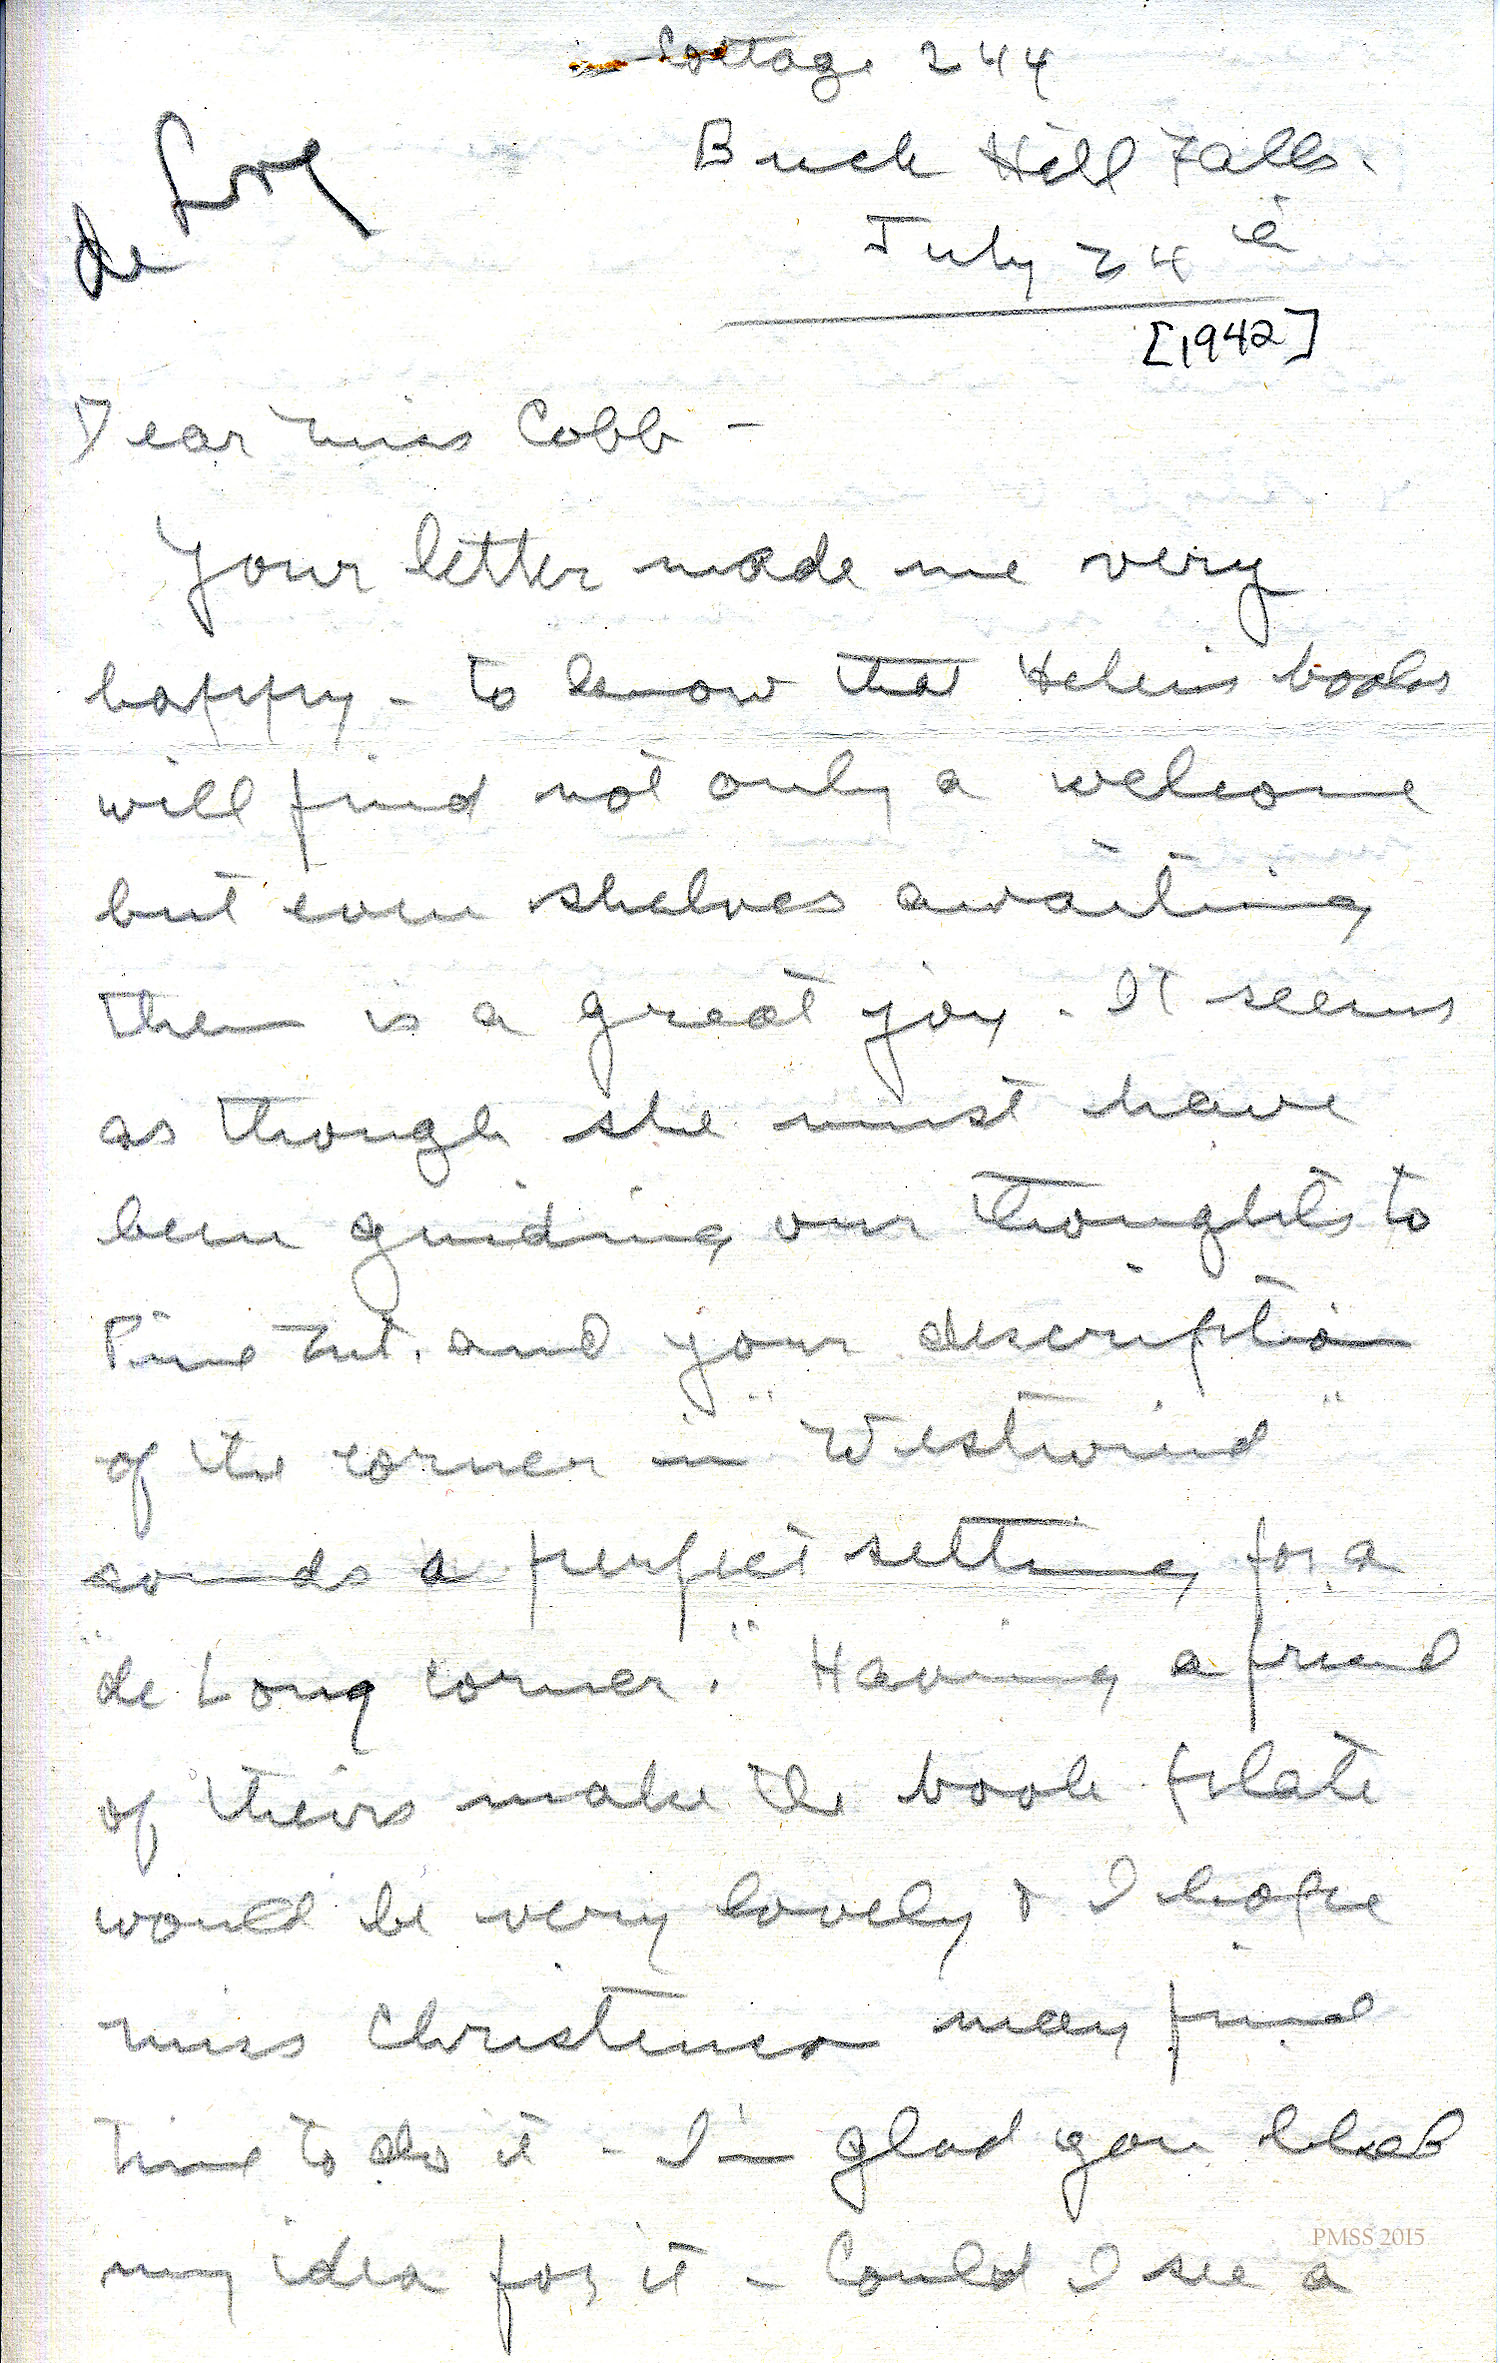 Cottage 244
de Long
Buck Hill Falls.
July 24th
[1942]
Dear Miss Cobb -
Your letter made me very
happy - to know that Helen's books
will find not only a welcome
but even shelves awaiting
them is a great joy. It seems
as though she must have
been guiding our thoughts to
Pine Mt. and your description
of the corner in "Westwind"
sounds a perfect setting for a
"de Long corner." Having a friend
of theirs make the book plate
would be very lovely & I hope
Miss Christensen may find
time to do it - I'm glad you liked
my idea for it - Could I see a
PMSS 2015